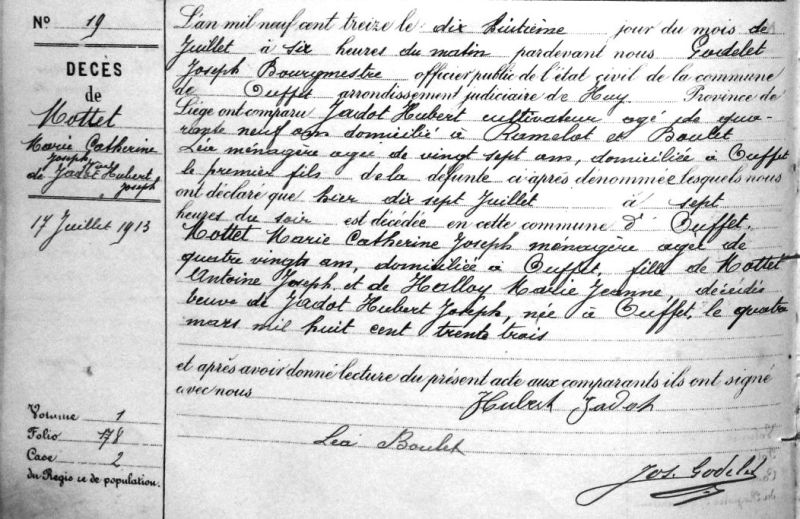 N° 19
DECÈS
de
Mottet
Marie Catherine
Joseph
de Jadot Hubert
Joseph
17 Juillet 1913
Volume 1
Folio 178
Case 2
du Regis re de population.
L'an mil neuf cent treize le dix huitième jour du mois de
Juillet à six heures du matin pardevant nous Godelet
Joseph Bourgmestre officier public de l'état civil de la commune
de Ouffet arrondissement judiciaire de Huy. Province de
Liége ont comparu Jadot Hubert cultivateur agé de qua-
rante neuf ans domicilié à Ramelot et Boulet
Léa ménagère agée de vingt sept ans, domiciliée à Ouffet
le premier fils de la défunte ci après dénommée lesquels nous
ont déclaré que hier dix sept Juillet à sept
heures du soir est décédée en cette commune d'Ouffet.
Mottet Marie Catherine Joseph ménagère agée de
quatre vingts ans, domiciliée à Ouffet, fille de Mottet
Antoine Joseph et de Halloy Marie Jeanne, décédés
veuve de Jadot Hubert Joseph, née à Ouffet, le quatre
mars mil huit cent trente trois
et après avoir donné lecture du présent acte aux comparants ils ont signé
avec nous
Hubert Jadot
Léa Boulet
Jos. Godelet